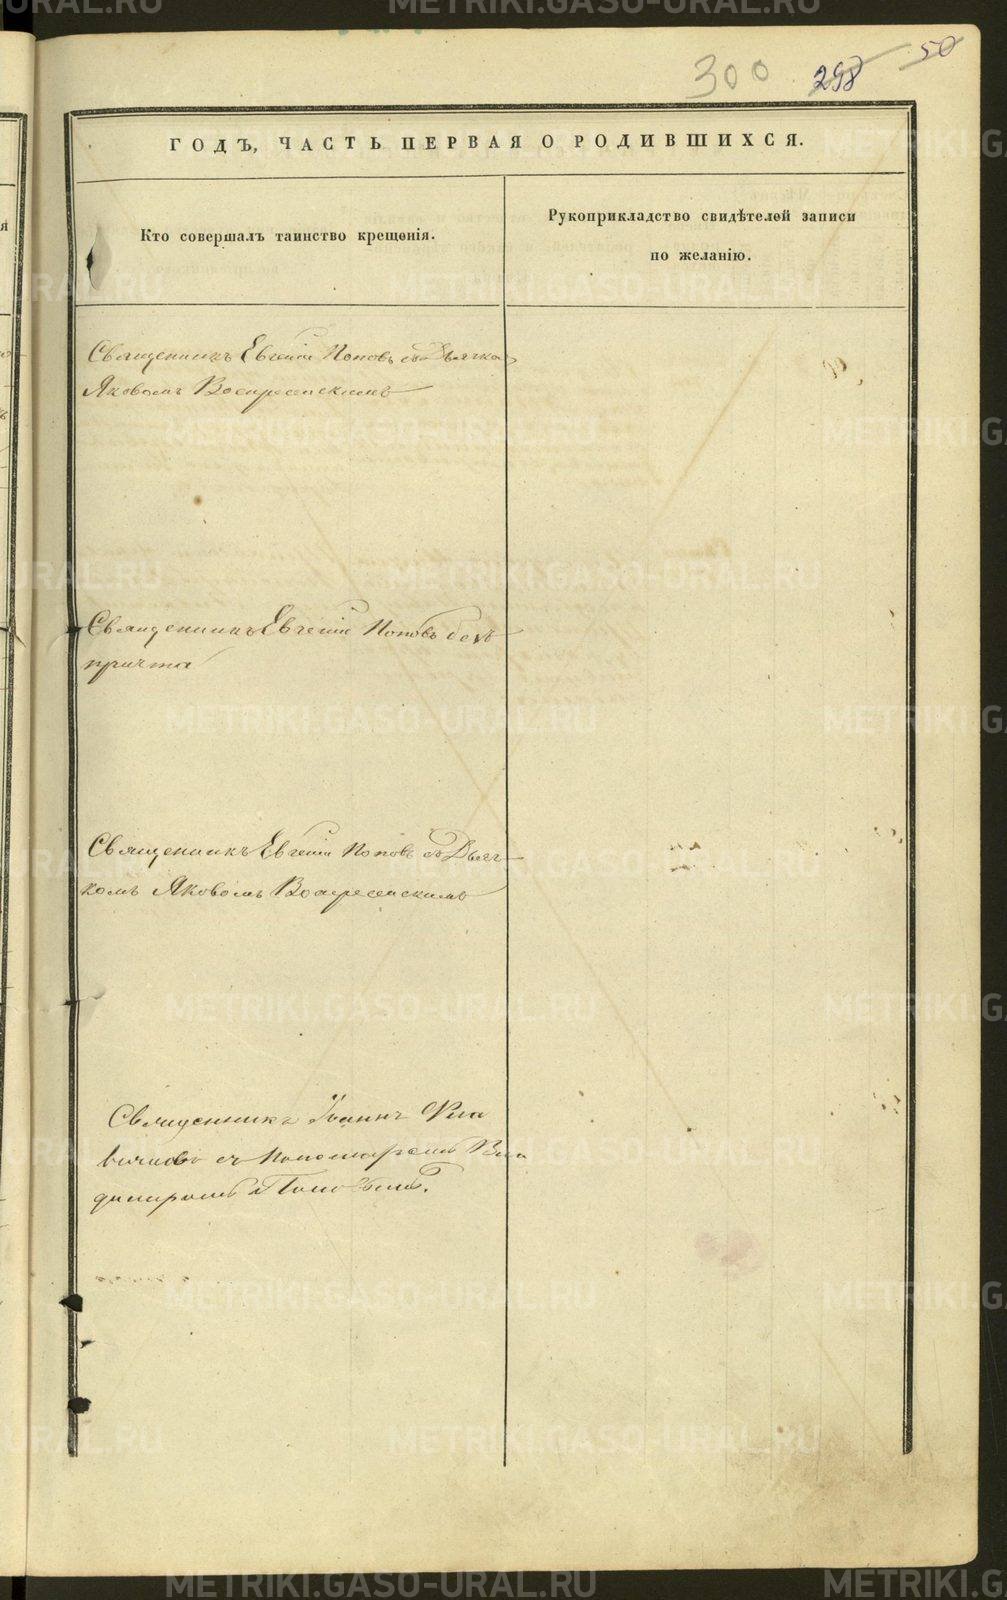 300 298 50
ГОДЪ, ЧАСТЬ ПЕРВАЯ О РОДИВШИХСЯ.
Кто совершалъ таинство крещенія.
Рукоприкладство свидѣтелей записи
по желанію.
Священникъ Евгеній Поповъ съ Дьячко
Яковомъ Воскресенскимъ
Священникъ Евгеній Поповъ безъ
причта
Священникъ Евгеній Поповъ съ Дьяч
комъ Яковомъ Воскресенскимъ
Священникъ Іоаннъ
съ Пономаремъ Вла
димиромъ Поповымъ.
METRIKI.GASO-URAL.RU